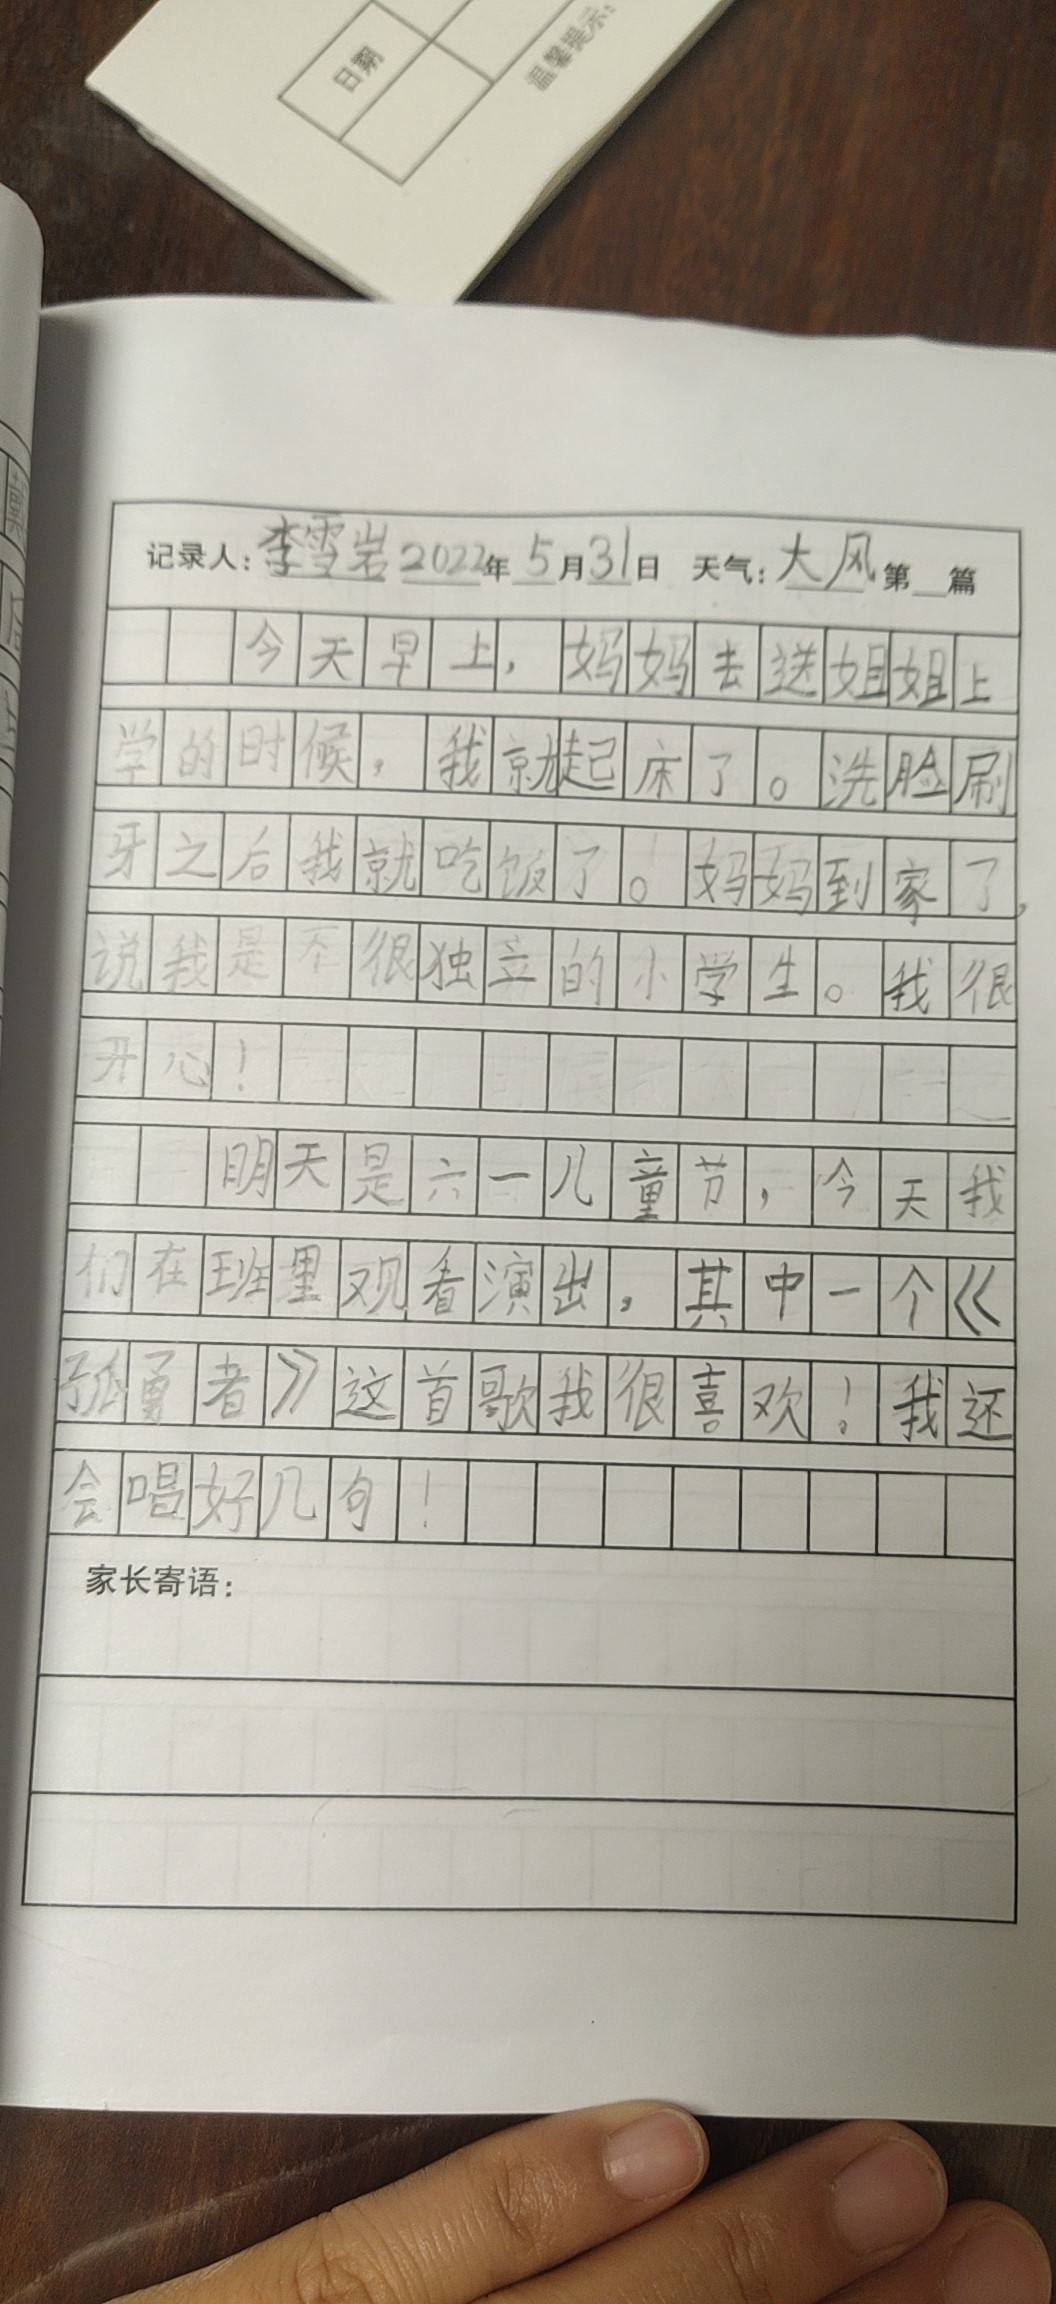 日期
温馨提示：
记录人：李雪岩 2022年5月31日 天气：大风 第__篇
今天早上，妈妈去送姐姐上
学的时候，我就起床了。洗脸刷
牙之后我就吃饭了。妈妈到家了，
说我是不很独立的小学生。我很
开心！
明天是六一儿童节，今天我
们在班里观看演出，其中一个《
孤勇者》这首歌我很喜欢！我还
会唱好几句！
家长寄语：